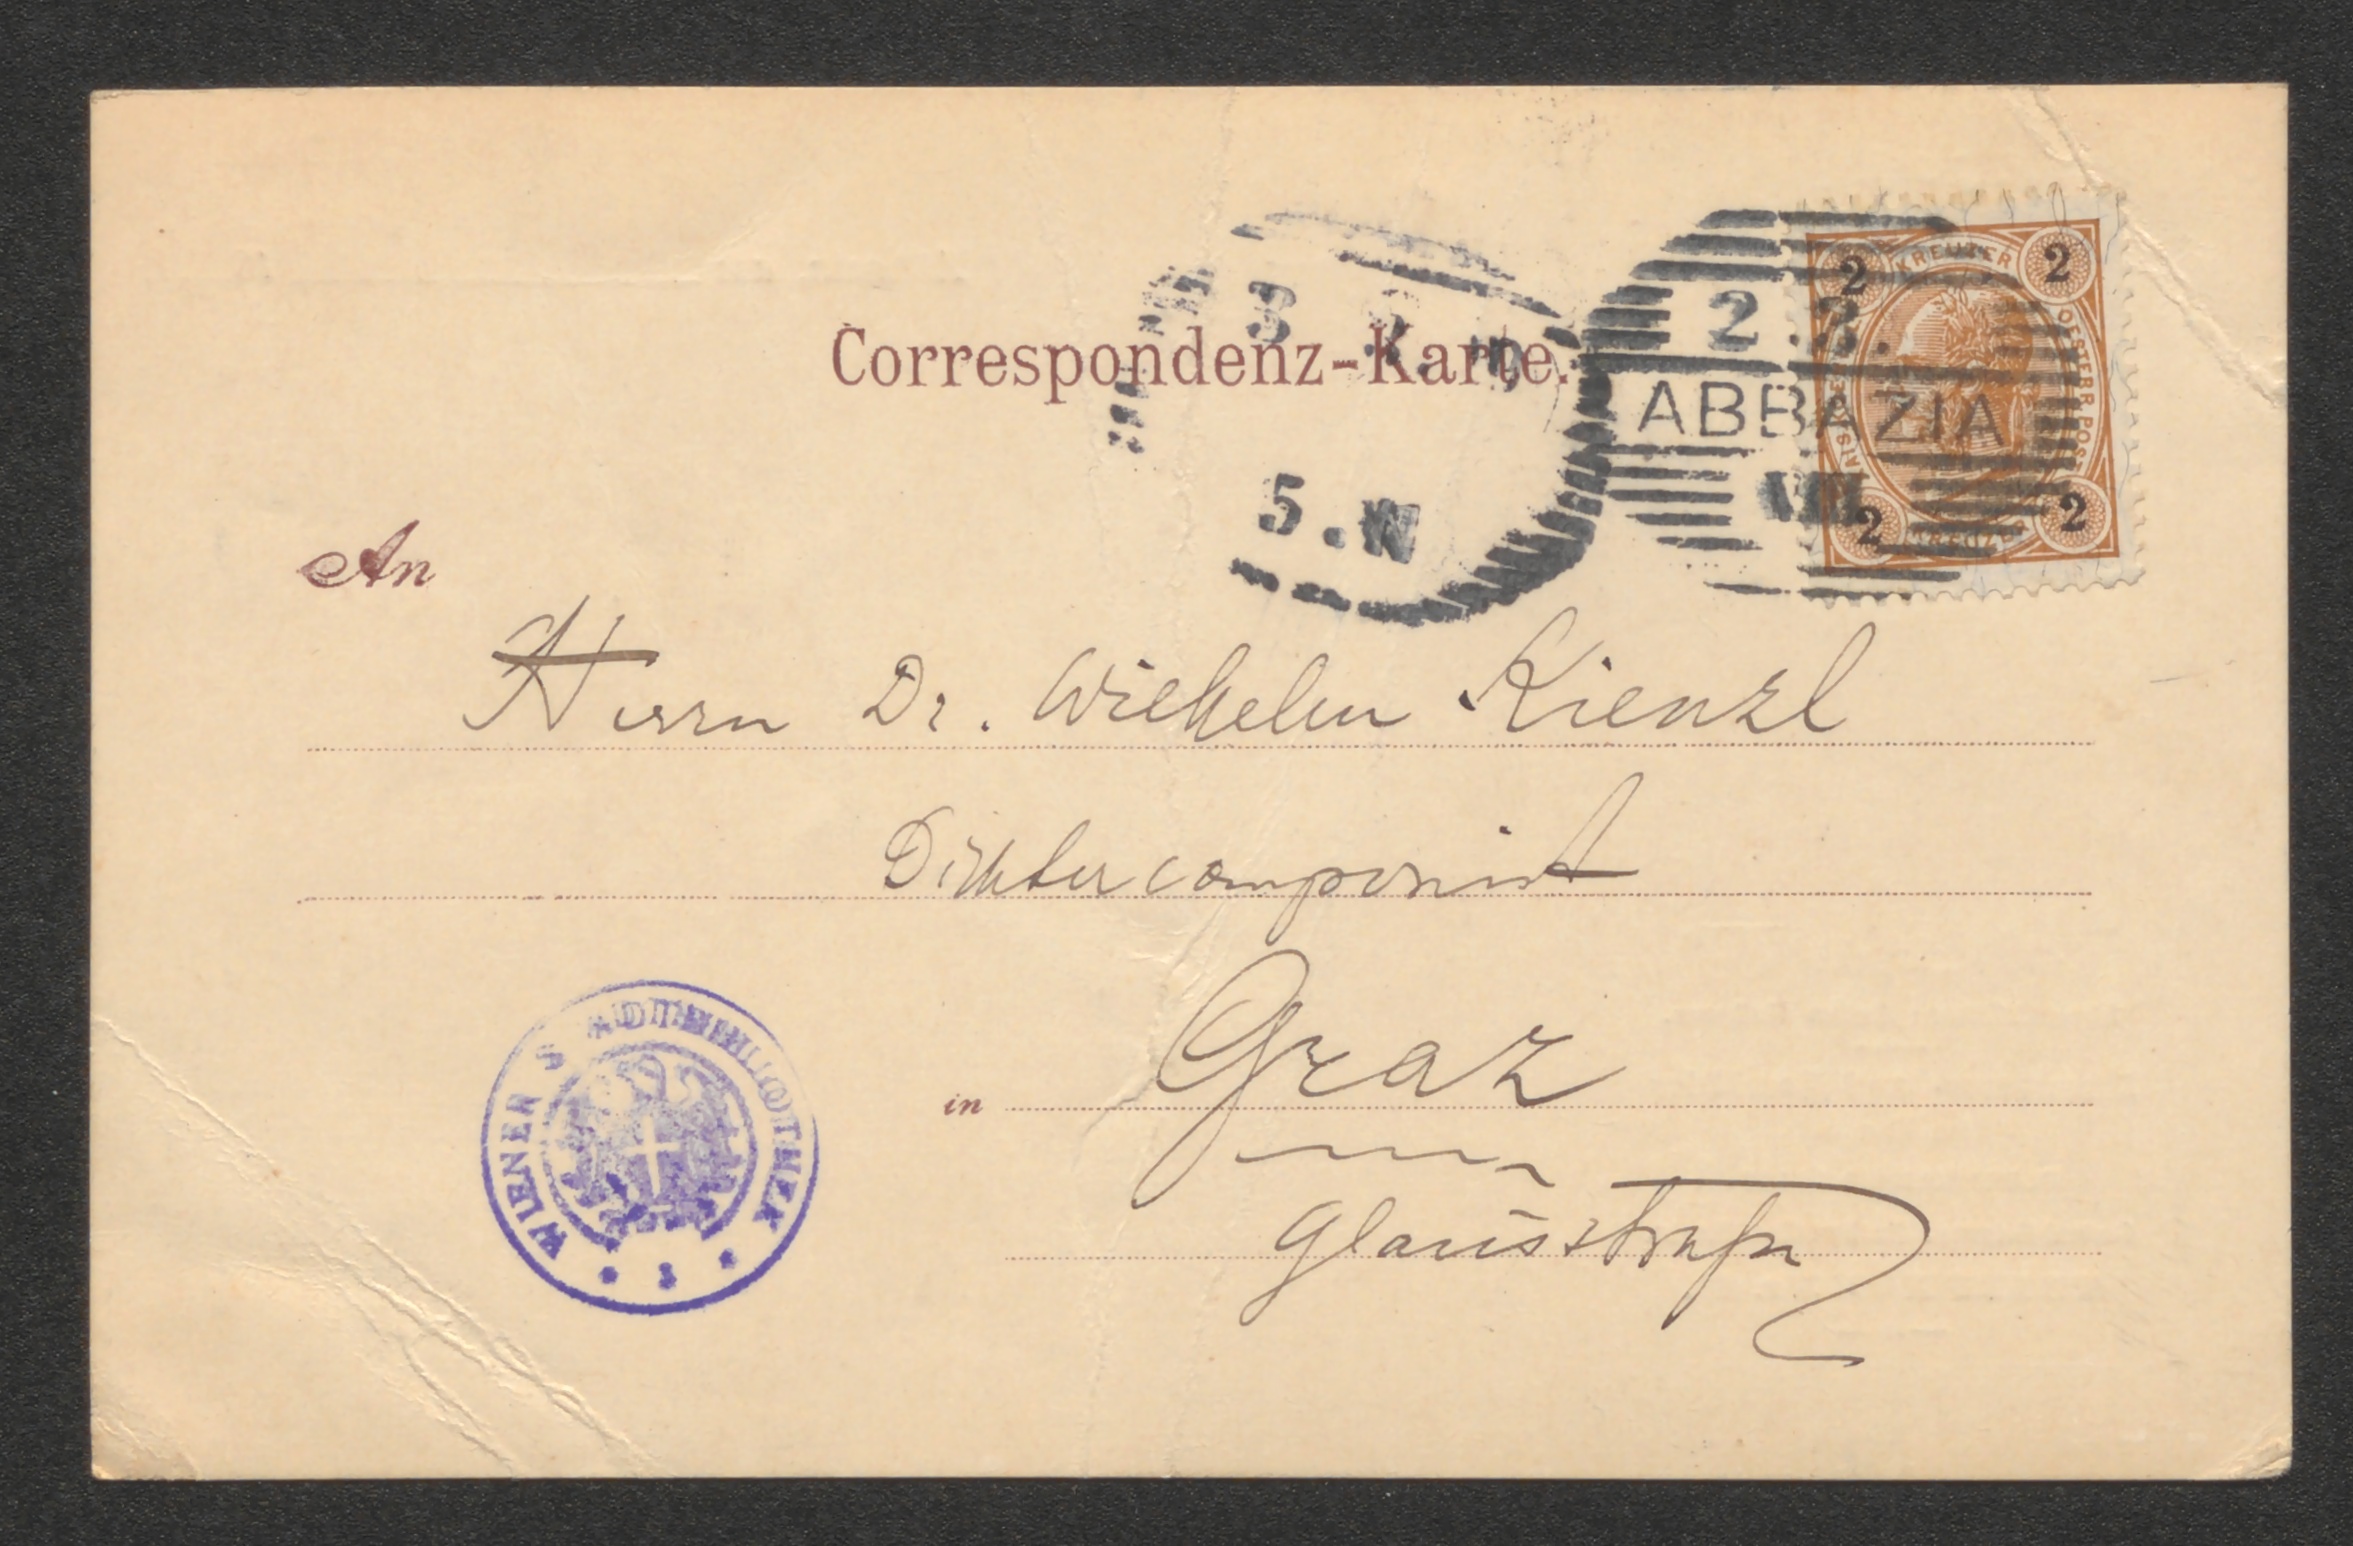 Correspondenz-Karte.
3
5.N
2.3.
ABBAZIA
VIII
2 KREUZER 2
OESTERR. POST
2 KREUZER 2
An
Herrn Dr. Wilhelm Kienzl
Dichtercomponist
in Graz
Glacisstraße
WIENER STADTBIBLIOTHEK